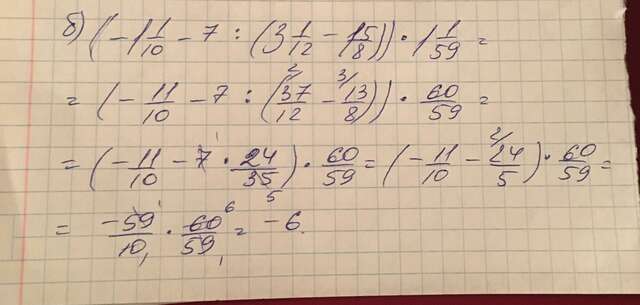 б) (-1 1/10 - 7 : (3 1/12 - 1 5/8)) · 1 1/59 =
= (- 11/10 - 7 : (37/12 - 13/8)) · 60/59 =
= (- 11/10 - 7 · 24/35) · 60/59 = (- 11/10 - 24/5) · 60/59 =
= -59/10 · 60/59 = -6.